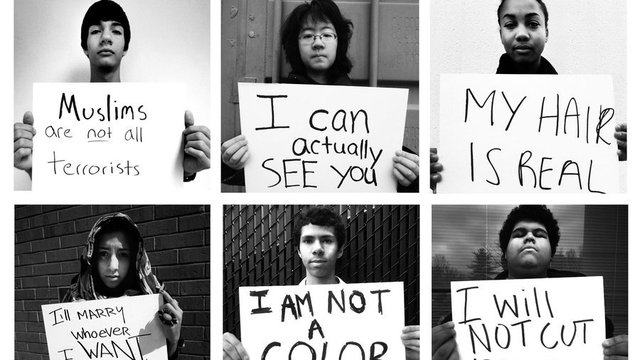 Muslims
are not all
terrorists
I can
actually
SEE YOU
MY HAIR
IS REAL
I'll MARRY
WHOEVER
I WANT
I AM NOT
A
COLOR
I will
NOT CUT